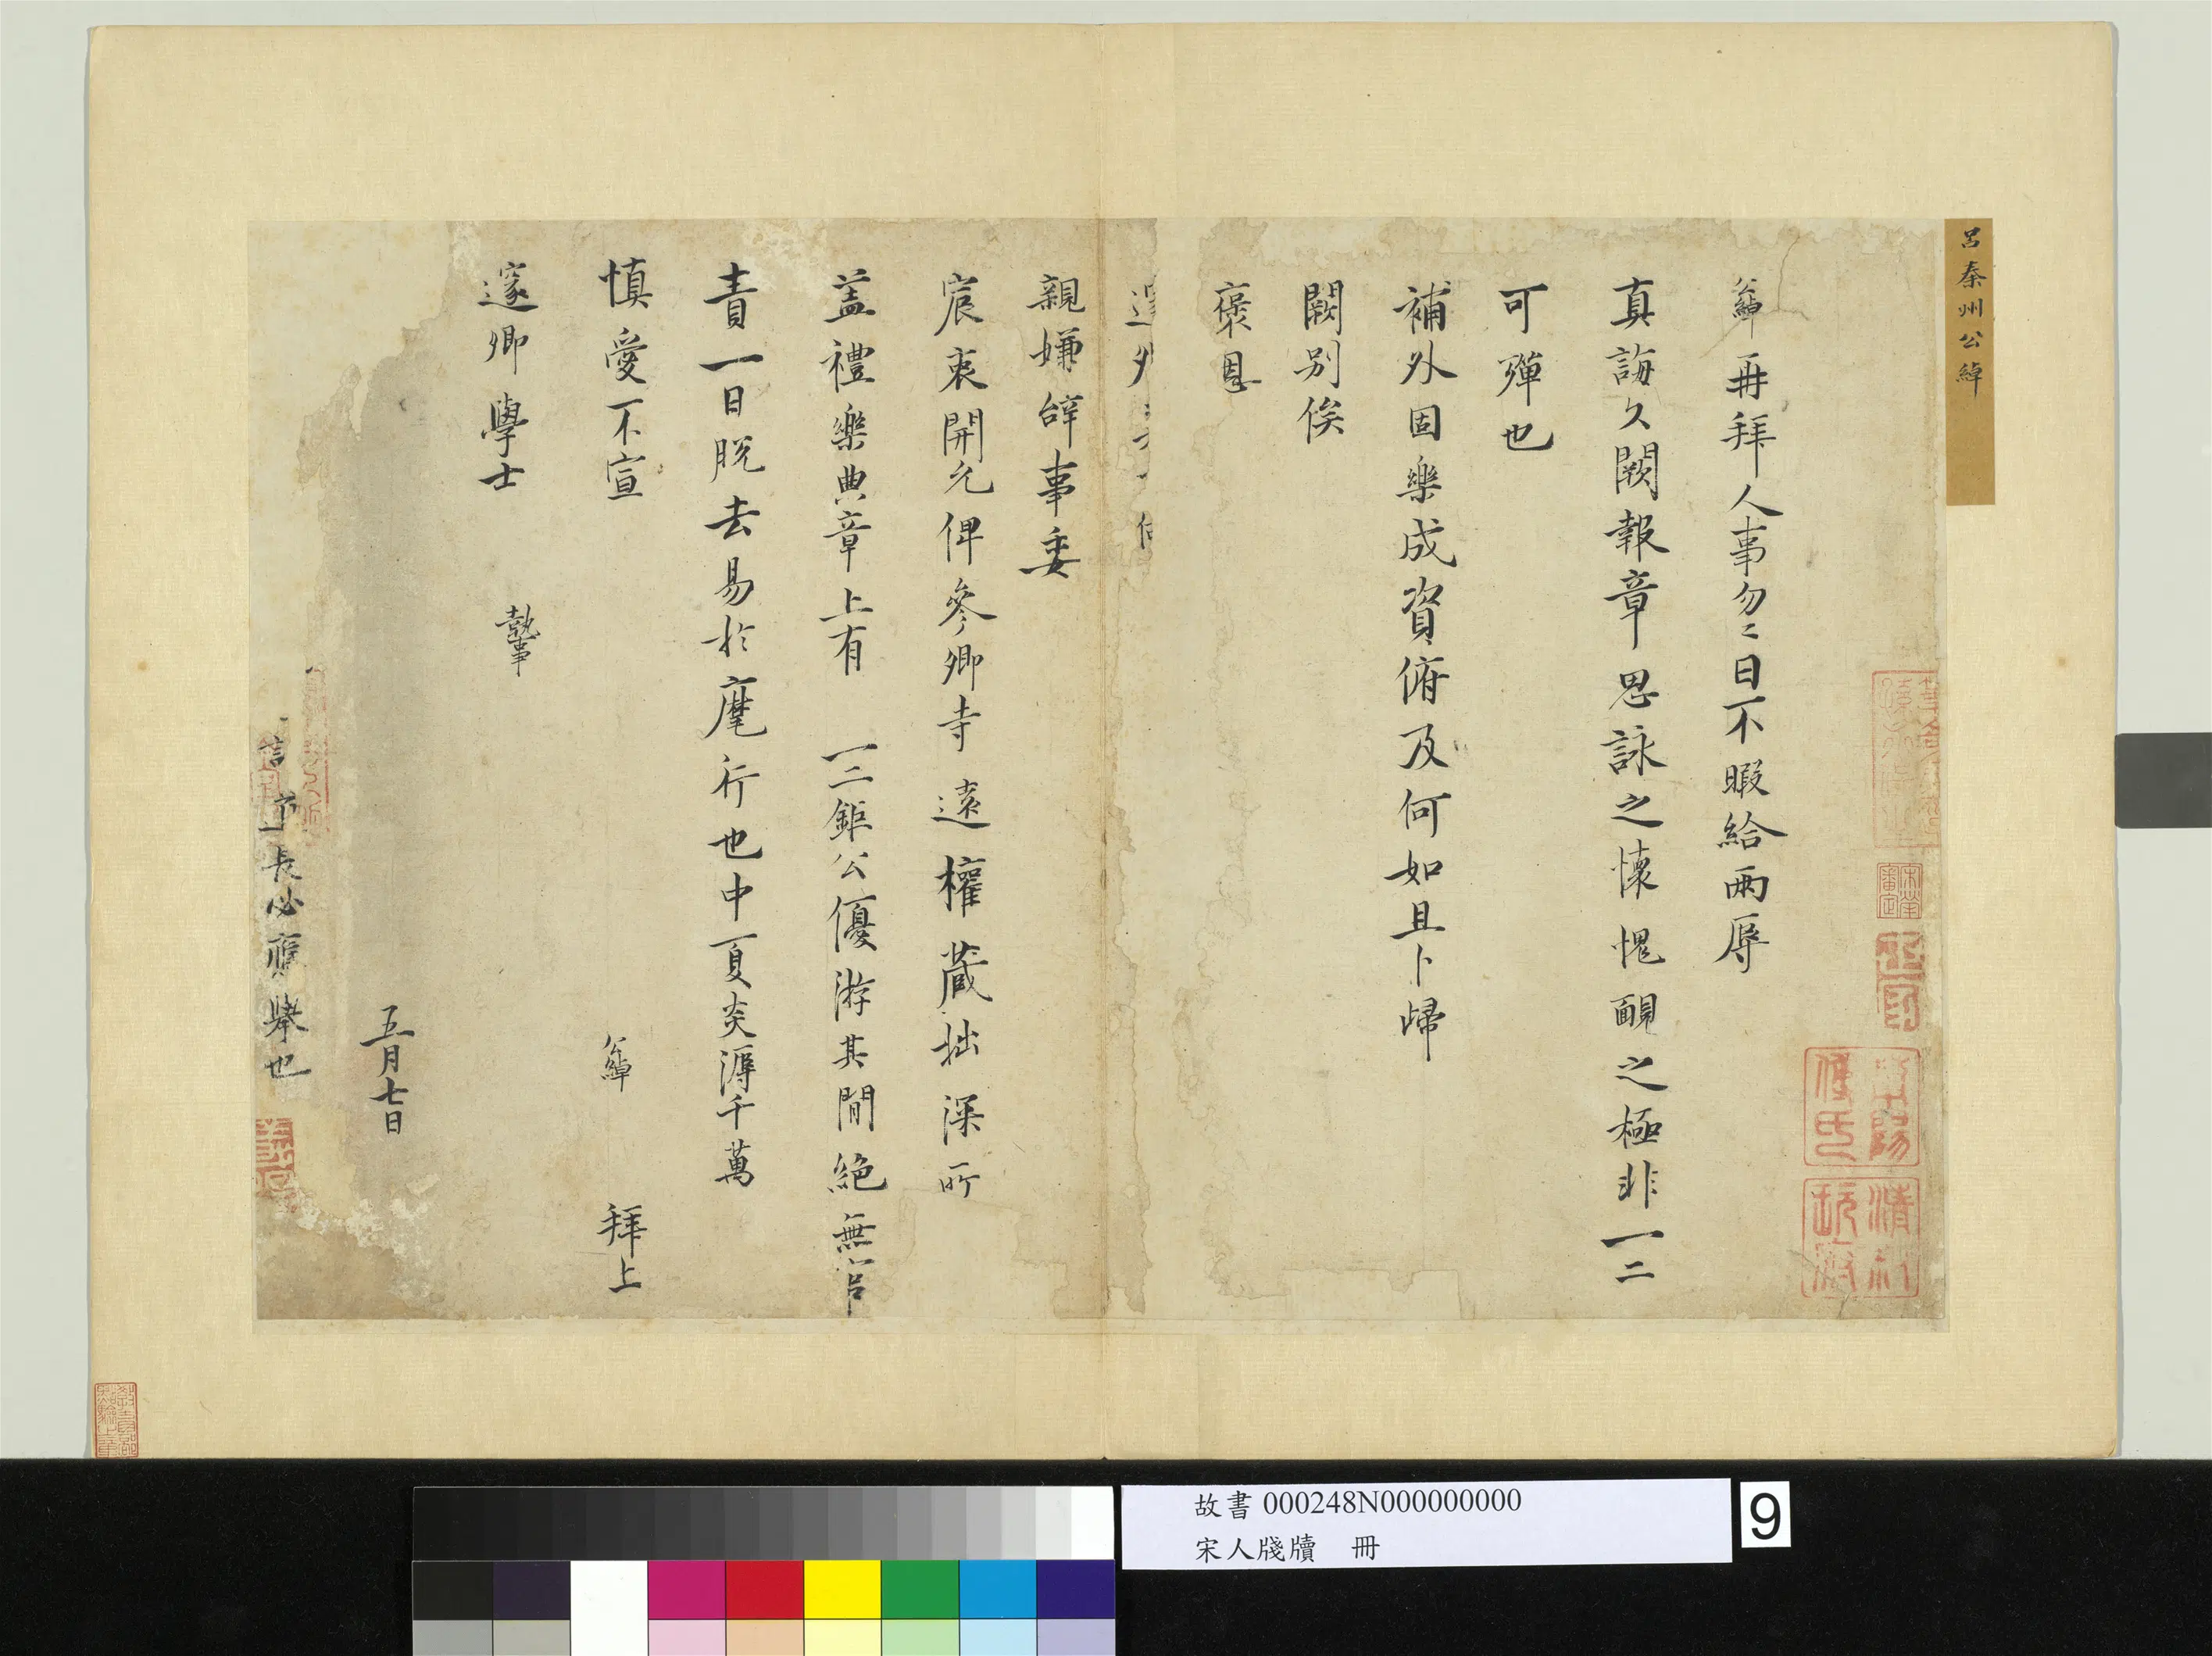 呂秦州公綽
公綽再拜人事勿〻日不暇給兩辱
真誨久闕報章思詠之懷愧靦之極非一二
可殫也
補外固樂成資俯及何如且卜歸
闕別俟
褒恩
親嫌辞事委
宸衷開允俾參卿寺遠權藏拙深所
蓋禮樂典章上有 一二鉅公優游其間絕無官
責一日脫去易於麾行也中夏炎溽千萬
慎愛不宣 公綽 拜上
邃卿學士 執事
五月七日
長必應舉也
故書 000248N000000000
宋人牋牘 冊
9